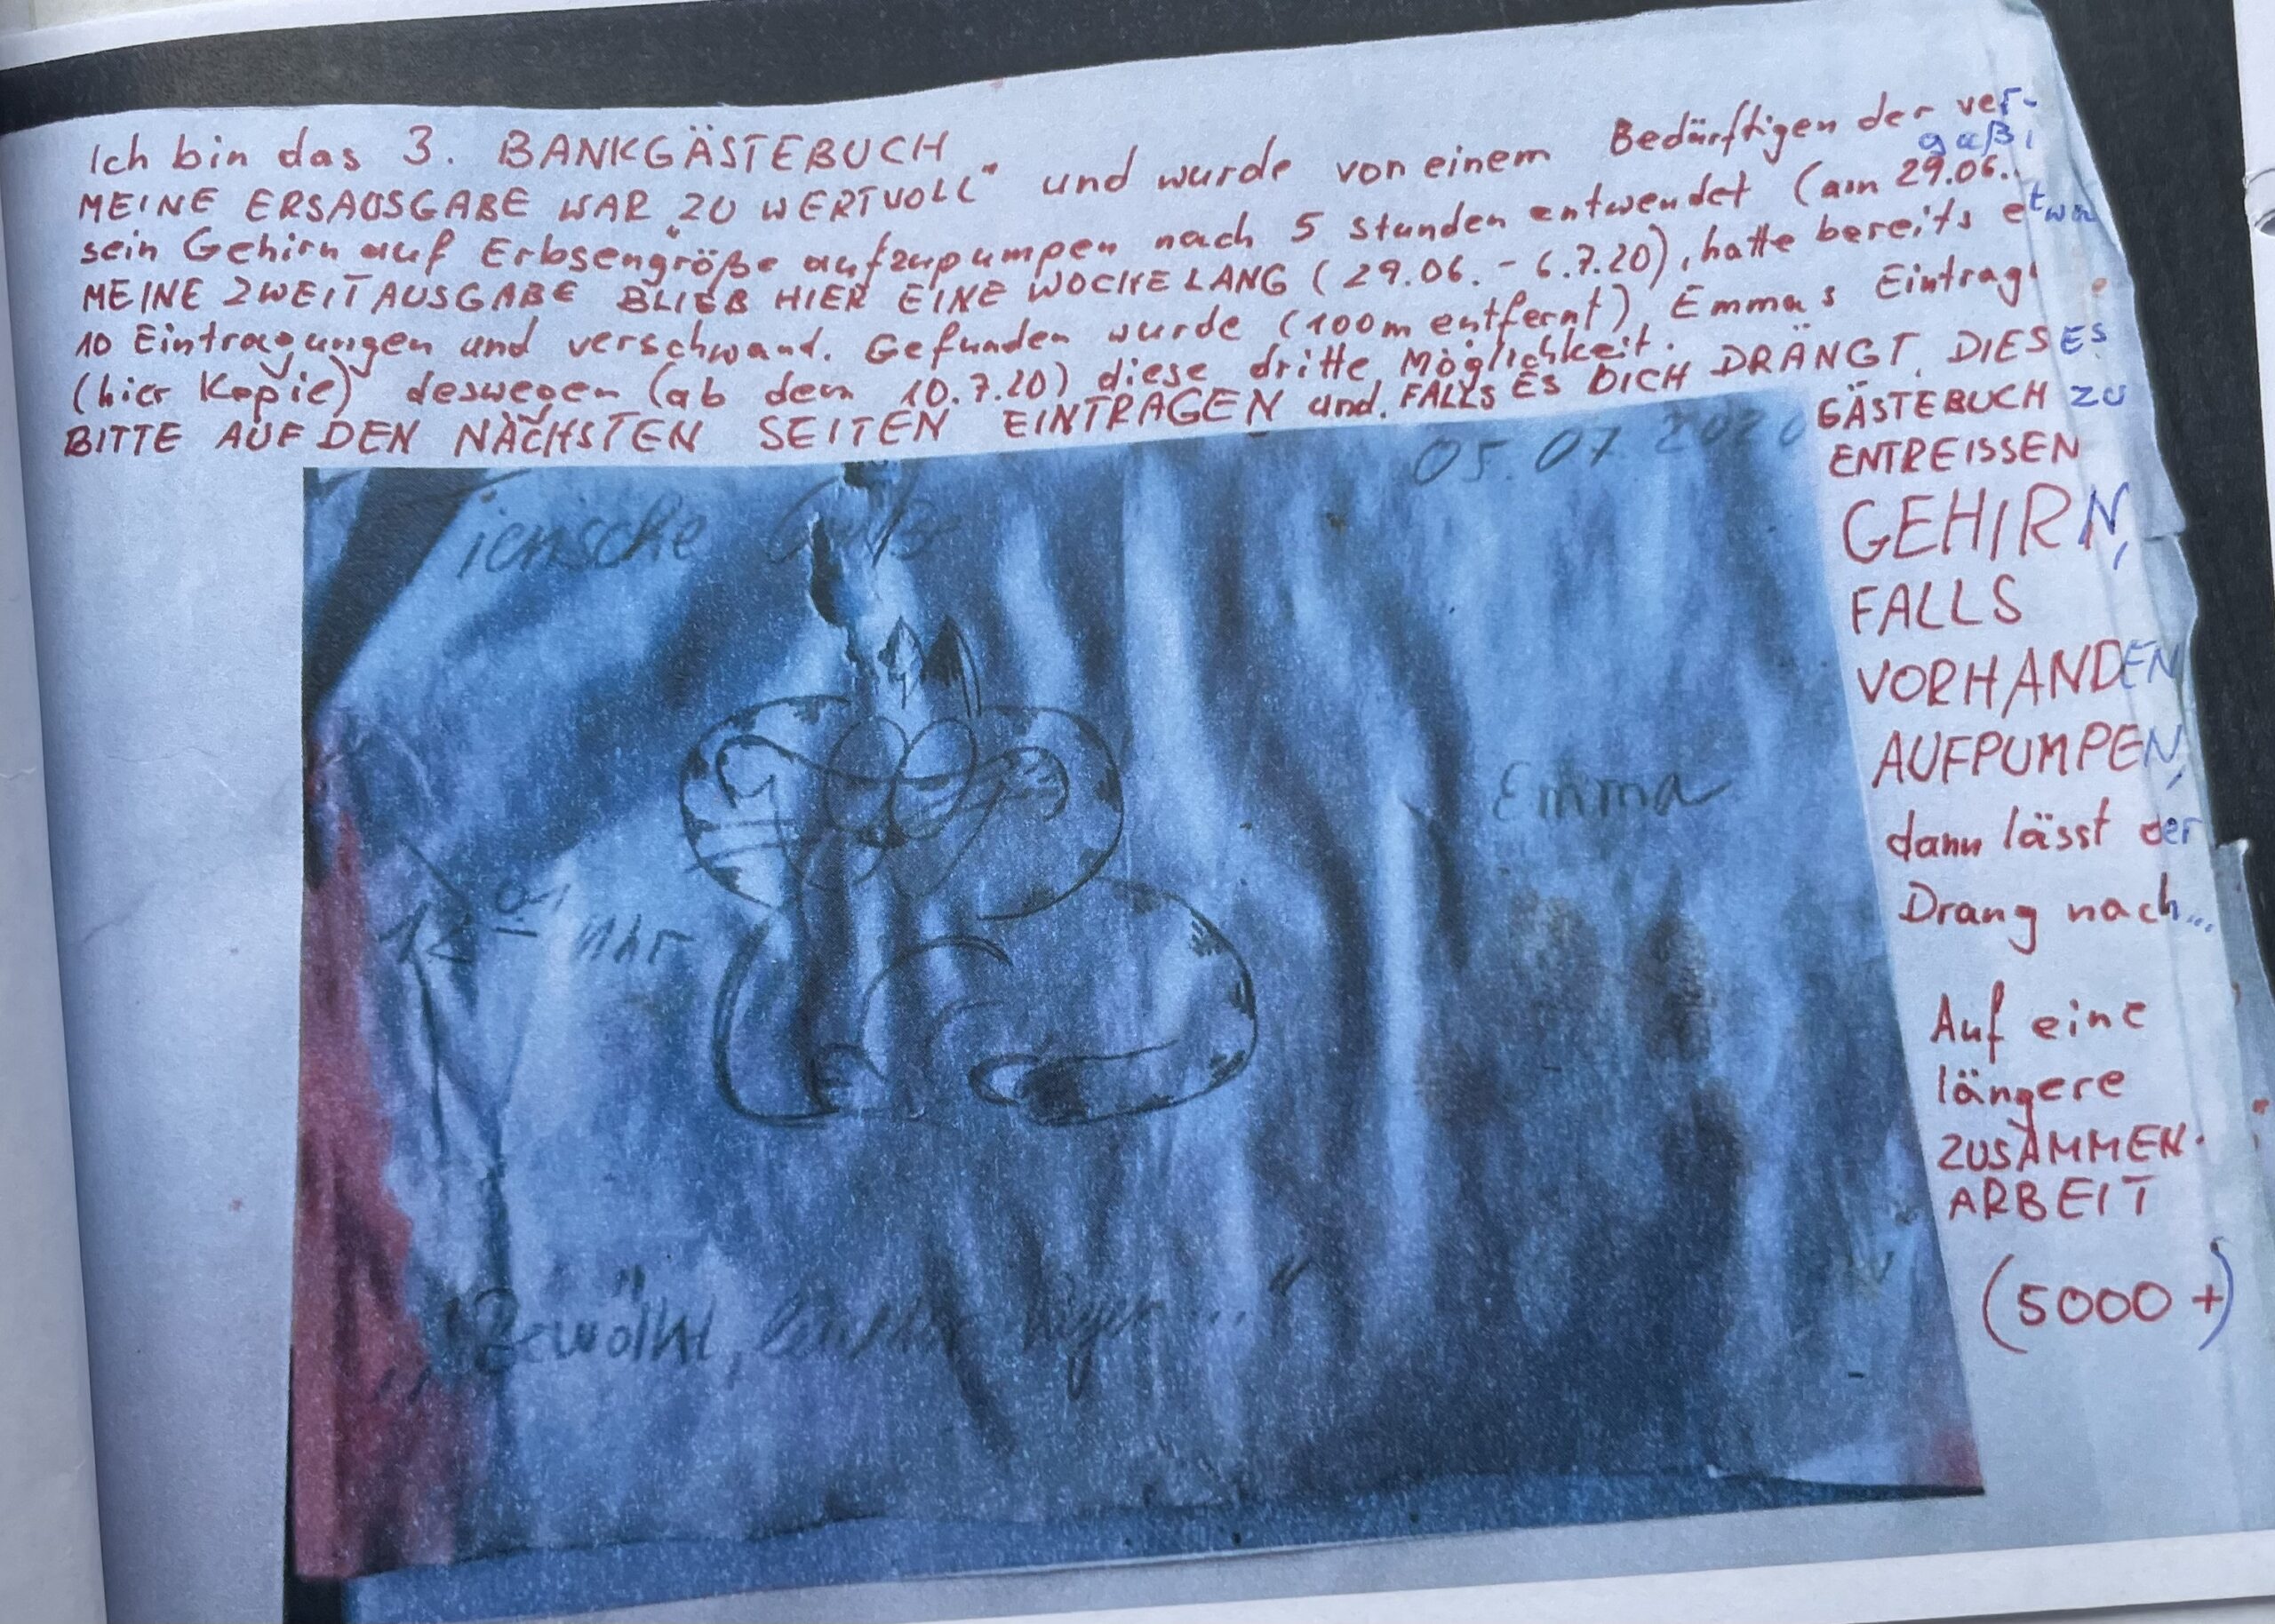 Ich bin das 3. BANKGÄSTEBUCH
MEINE ERSAUSGABE WAR "ZU WERTVOLL" und wurde von einem Bedürftigen der ver-
gaß,
sein Gehirn auf Erbsengröße aufzupumpen nach 5 Stunden entwendet (am 29.06..
MEINE ZWEITAUSGABE BLIEB HIER EINE WOCHE LANG (29.06. - 6.7.20), hatte bereits etwa
10 Eintragungen und verschwand. Gefunden wurde (100m entfernt) Emma's Eintrag
(hier Kopie) deswegen (ab dem 10.7.20) diese dritte Möglichkeit.
BITTE AUF DEN NÄCHSTEN SEITEN EINTRAGEN und, FALLS ES DICH DRÄNGT, DIESES
GÄSTEBUCH ZU
ENTREISSEN
GEHIRN,
FALLS
VORHANDEN
AUFPUMPEN,
dann lässt der
Drang nach...
Auf eine
längere
ZUSAMMEN-
ARBEIT
(5000 +)
05.07.2020
Emma
Uhr
"Bewölkt, ..."